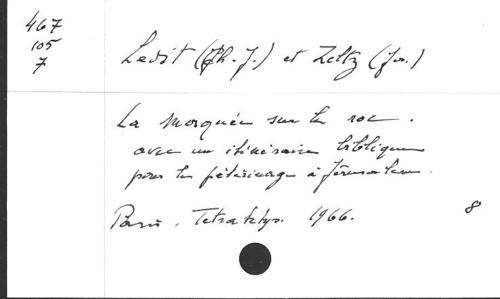 467
105
7
Ledit (Ch. J.) et Zeltz (Jo.)
La Mosquée sur le roc.
avec un itinéraire biblique
pour les pélerinage à Jérusalem.
Paris. Tetraktys. 1966.
8